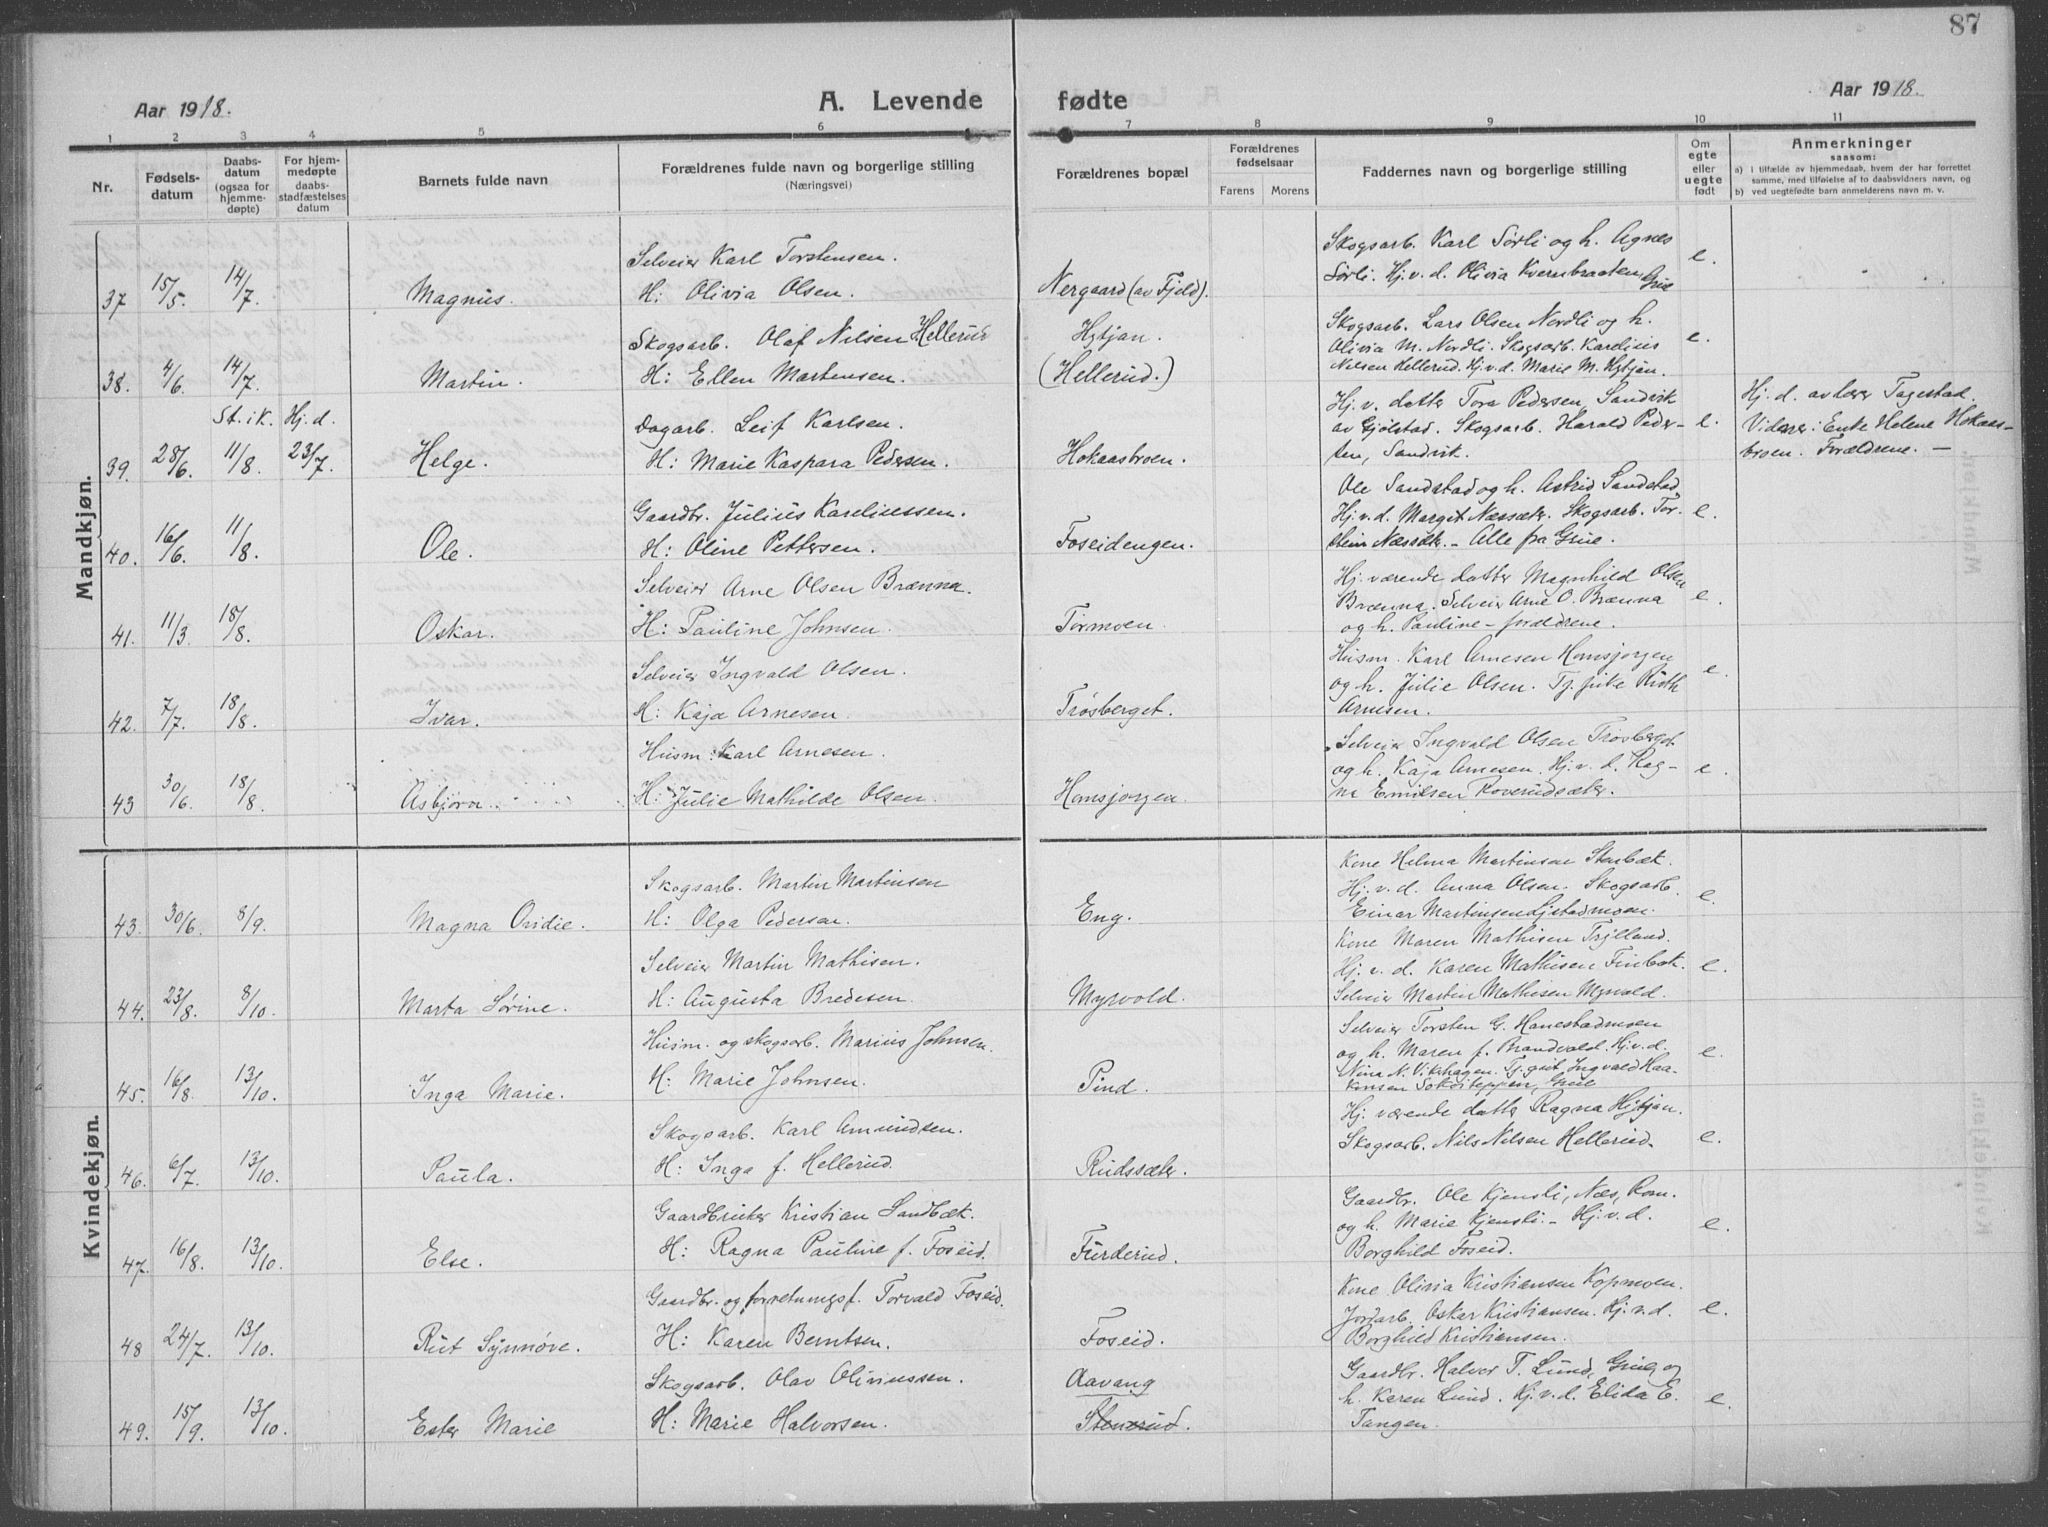 87
Aar 1918.
A. Levende fødte
Aar 1918.
1 2 3 4 5 6 7 8 9 10 11
Nr.
Fødsels-
datum
Daabs-
datum
(ogsaa for
hjemme-
døpte)
For hjem-
medøpte
daabs-
stadfæstelses
datum
Barnets fulde navn
Forældrenes fulde navn og borgerlige stilling
(Næringsvei)
Forældrenes bopæl
Forældrenes
fødselsaar
Farens Morens
Faddernes navn og borgerlige stilling
Om
egte
eller
uegte
født
Anmerkninger
saasom:
a) i tilfælde av hjemmedaab, hvem der har forrettet
samme, med tilføielse af to daabsvidners navn, og
b) ved uegtefødte barn anmelderens navn m. v.
Mandkjøn.
Selveier Karl Torstensen. Skogsarb. Karl Sørli og h. Agnes
37 15/5. 14/7. Magnus. H: Olivia Olsen. Nergaard (av Fjeld). Sørli. Hj. v. d. Olivia Kvernbraaten Grue e.
Skogsarb. Olaf Nilsen Hellerud Hytjan. Skogsarb. Lars Olsen Nordli og h.
Olivia M. Nordli. Skogsarb. Karelius e.
38. 4/6. 14/7. Martin. H: Ellen Martensen. (Hellerud.) Nilsen Hellerud. Hj. v. d. Marie M. Hytjan.
St. i k. Hj. d. Dagarb. Leif Karlsen. Hj. v. datter Tora Pedersen, Sandvik Hj. d. av lærer Tagestad.
av Gjølstad. Skogsarb. Harald Peder- e. Vidner: Enke Helene Hokaas-
39. 28/6. 11/8. 23/7. Helge. H: Marie Kaspara Pedersen. Hokaasbroen. sen, Sandvik. broen. Forældrene. —
Gaardbr. Julius Kareliussen. Ole Sandstad og h. Astrid Sandstad
Hj. v. d. Margit Næssæter. Skogsarb. Tor- e.
40. 16/6. 11/8. Ole. H: Oline Pettersen. Foseidengen. stein Næssæter. - Alle fra Grue.
Selveier Arne Olsen Brænna. Hj. værende datter Magnhild Olsen
Brænna. Selveier Arne O. Brænna e.
41. 11/3. 18/8. Oskar. H: Pauline Johnsen. Tormoen. og h. Pauline - forældrene.
Selveier Ingvald Olsen. Husm. Karl Arnesen Homsjorgen
og h. Julie Olsen. Tj. pike Ruth e.
42. 7/7. 18/8. Ivar. H: Kaja Arnesen. Trøsberget. Arnesen.
Husm. Karl Arnesen. Selveier Ingvald Olsen Trøsberget
og h. Kaja Arnesen. Hj. v. d. Rag- e.
43 30/6. 18/8. Asbjørn. H: Julie Mathilde Olsen. Homsjorgen. na Emilsen Roverudsæter.
Kvindekjøn.
Skogsarb. Martin Martinsen Kone Helma Martinsen Starbæk.
Hj. v. d. Anna Olsen. Skogsarb. e.
43. 30/6. 8/9. Magna Ovidie. H: Olga Pedersen. Eng. Einar Martinsen
Selveier Martin Mathisen. Kone Maren Mathisen
Hj. v. d. Karen Mathisen Finbæk. e.
44. 23/8. 8/10. Marta Sørine. H: Augusta Bredesen. Myrvold. Selveier Martin Mathisen Myrvold.
Husm. og skogsarb. Marius Johnsen. Selveier Torsten G. Hanestadmoen
og h. Maren f. Brandvold. Hj. v. d. e.
45. 16/8. 13/10. Inga Marie. H: Marie Johnsen. Pind. Nina N. Vikhagen. Tj. gut Ingvald Haa-
konsen Grue
Skogsarb. Karl Amundsen. Hj. værende datter Ragna Hytjan.
Skogsarb. Nils Nilsen Hellerud. e.
46. 6/7. 13/10. Paula. H: Inga f. Hellerud. Rudssæter.
Gaardbruker Kristian Sandbæk. Gaardbr. Ole Kjensli, Næs, Rom.
og h. Marie Kjensli. - Hj. v. d. e.
47. 16/8. 13/10. Else. H: Ragna Pauline f. Foseid. Furderud. Borghild Foseid.
Gaardbr. og forretningsf. Torvald Foseid. Kone Olivia Kristiansen Kopmoen.
Jordarb. Oskar Kristiansen. Hj. v. d. e.
48 24/7. 13/10. Rut Synnøve. H: Karen Berntsen. Foseid. Borghild Kristiansen.
Skogsarb. Olav Oliviussen. Aavang Gaardbr. Halvor T. Lund, Grue, og
h. Karen Lund. Hj. v. d. Elida E. e.
49. 15/9. 13/10. Ester Marie H: Marie Halvorsen. Stenerud. Tangen.